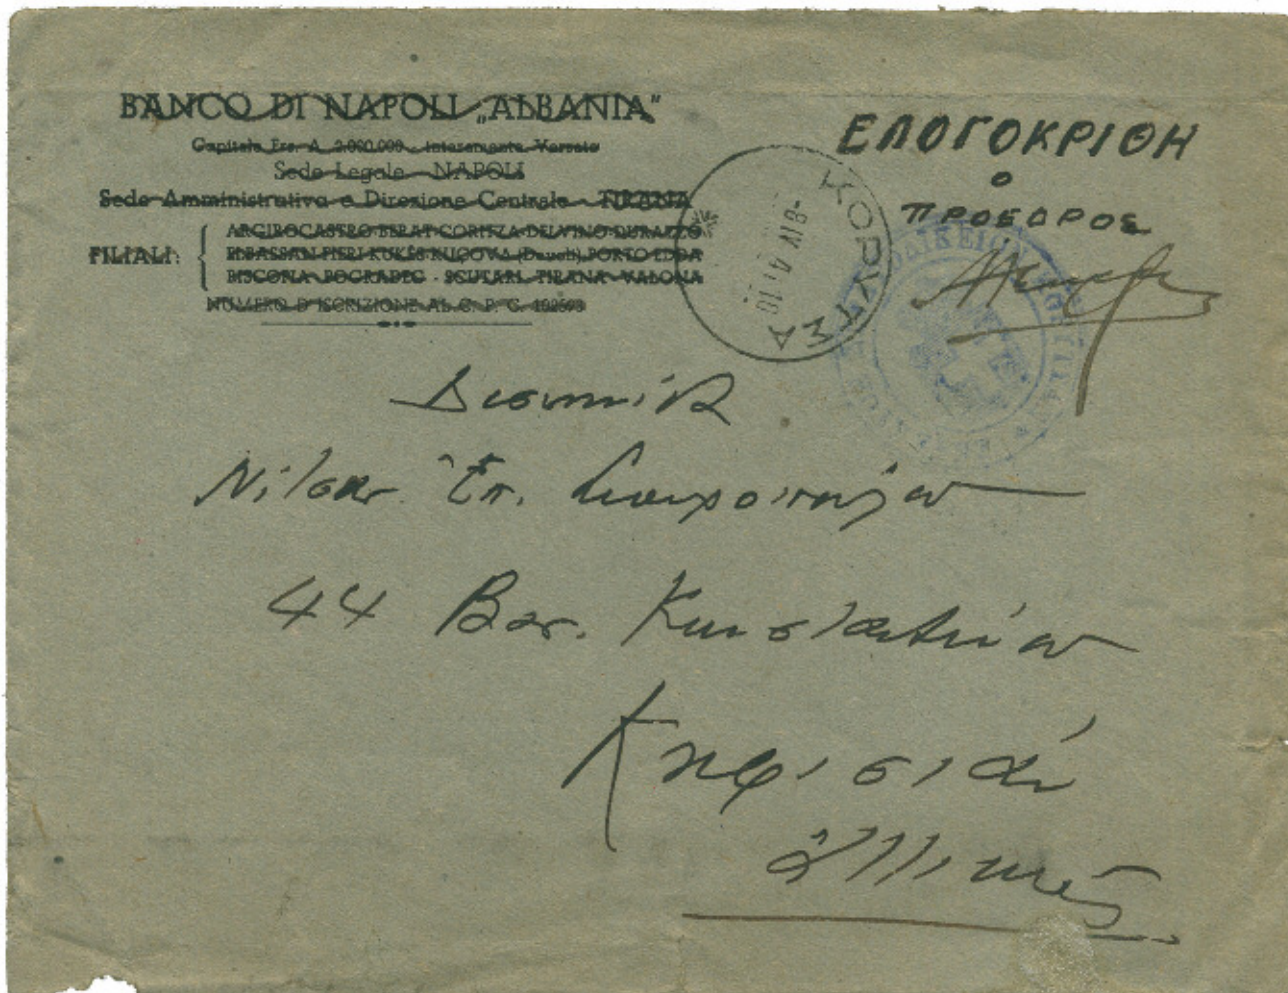 BANCO DI NAPOLI „ALBANIA"
Capitale Frs. A. 2.000.000 - interamente Versato
Sede Legale - NAPOLI
Sede Amministrativa e Direzione Centrale - TIRANA
FILIALI:
ARGIROCASTRO BERAT CORITZA DELVINO DURAZZO
ELBASSAN FIERI KUKËS KUÇOVA (Devoli) PORTO EDDA
BISCONIA POGRADEC - SCUTARI - TIRANA - VALONA
NUMERO D'ISCRIZIONE AL C. P. C.
ΕΛΟΓΟΚΡΙΘΗ
Ο
ΠΡΟΕΔΡΟΣ
ΚΟΡΥΤΣΑ
-8 IV 41 10
Δεσποινίδα
Νίτσαν Ἐπ.
44 Βασ. Κωνσταντίνου
Κηφισιάν
Ἀττικῆς